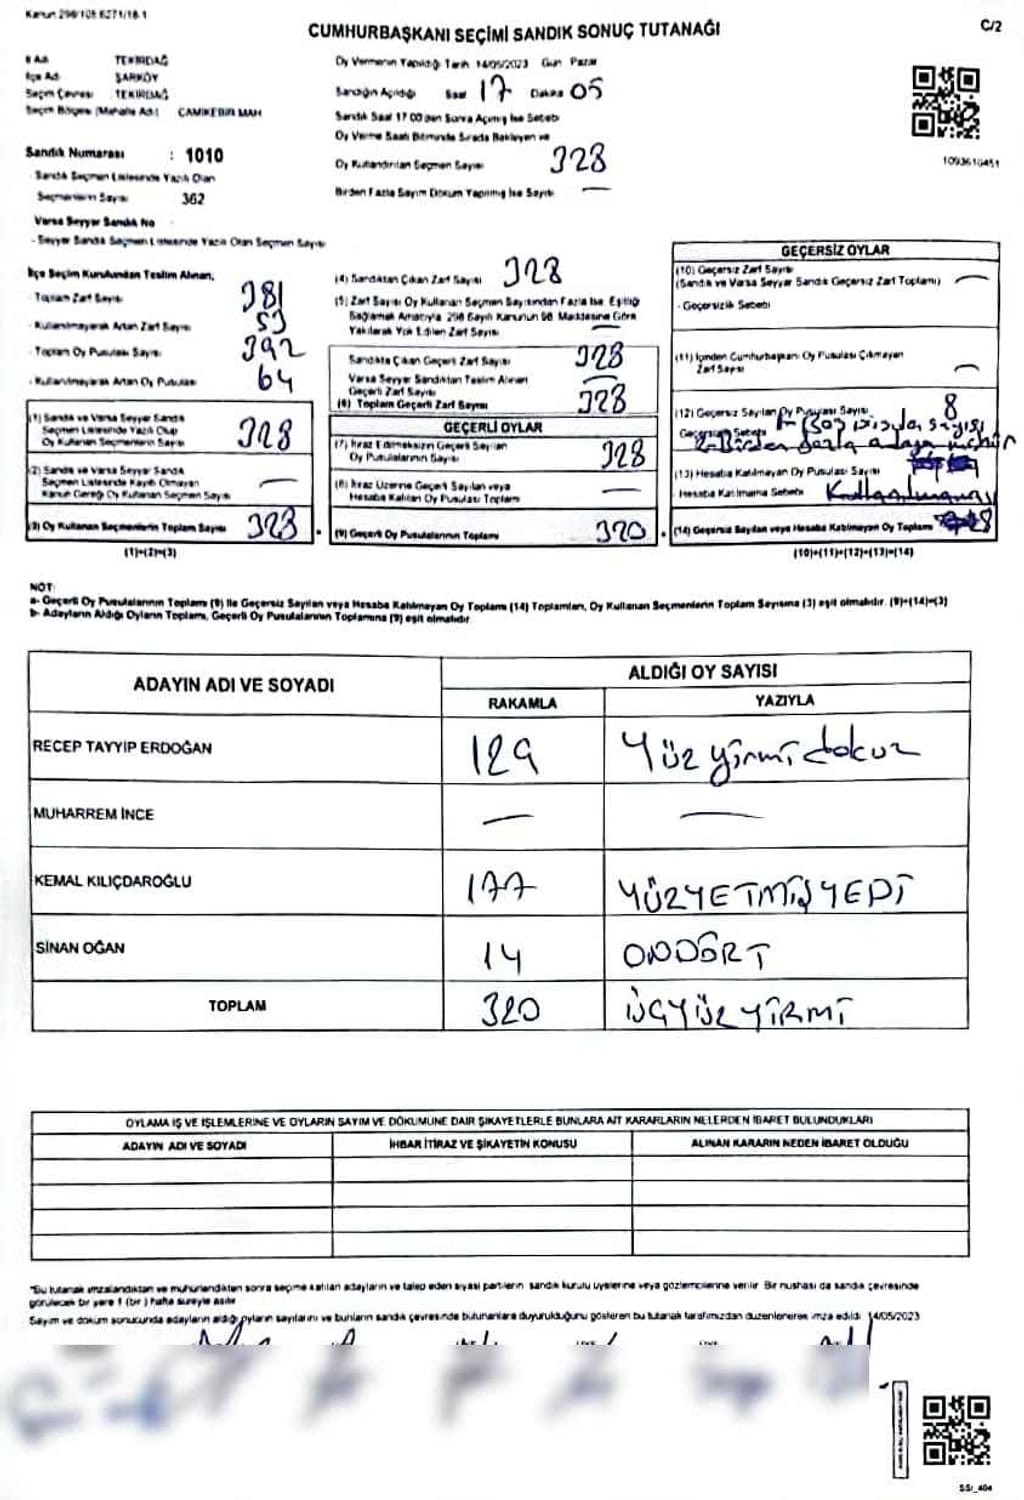 Kanun 298/105 6271/18.1
CUMHURBAŞKANI SEÇİMİ SANDIK SONUÇ TUTANAĞI
C/2
İl Adı TEKİRDAĞ
İlçe Adı ŞARKÖY
Seçim Çevresi TEKİRDAĞ
Seçim Bölgesi (Mahalle Adı) CAMİKEBİR MAH
Sandık Numarası : 1010
- Sandık Seçmen Listesinde Yazılı Olan
Seçmenlerin Sayısı 362
Varsa Seyyar Sandık No
- Seyyar Sandık Seçmen Listesinde Yazılı Olan Seçmen Sayısı
Oy Vermenin Yapıldığı Tarih 14/05/2023 Gün Pazar
Sandığın Açıldığı Saat 17 Dakika 05
Sandık Saat 17 00'den Sonra Açılmış İse Sebebi
Oy Verme Saati Bitiminde Sırada Bekleyen ve
Oy Kullandırılan Seçmen Sayısı 328
Birden Fazla Sayım Döküm Yapılmış İse Sayısı —
1093610451
İlçe Seçim Kurulundan Teslim Alınan;
- Toplam Zarf Sayısı 381
- Kullanılmayarak Artan Zarf Sayısı 53
- Toplam Oy Pusulası Sayısı 392
- Kullanılmayarak Artan Oy Pusulası 64
(1) Sandık ve Varsa Seyyar Sandık
Seçmen Listesinde Yazılı Olup
Oy Kullanan Seçmenlerin Sayısı 328
(2) Sandık ve Varsa Seyyar Sandık
Seçmen Listesinde Kayıtlı Olmayan
Kanun Gereği Oy Kullanan Seçmen Sayısı —
(3) Oy Kullanan Seçmenlerin Toplam Sayısı 328
(1)+(2)=(3)
(4) Sandıktan Çıkan Zarf Sayısı 328
(5) Zarf Sayısı Oy Kullanan Seçmen Sayısından Fazla İse, Eşitliği
Sağlamak Amacıyla 298 Sayılı Kanunun 98. Maddesine Göre
Yakılarak Yok Edilen Zarf Sayısı —
Sandıkta Çıkan Geçerli Zarf Sayısı 328
Varsa Seyyar Sandıktan Teslim Alınan
Geçerli Zarf Sayısı —
(6) Toplam Geçerli Zarf Sayısı 328
GEÇERLİ OYLAR
(7) İtiraz Edilmeksizin Geçerli Sayılan
Oy Pusulalarının Sayısı 328
(8) İtiraz Üzerine Geçerli Sayılan veya
Hesaba Katılan Oy Pusulası Toplamı —
(9) Geçerli Oy Pusulalarının Toplamı 320
GEÇERSİZ OYLAR
(10) Geçersiz Zarf Sayısı
(Sandık ve Varsa Seyyar Sandık Geçersiz Zarf Toplamı) —
- Geçersizlik Sebebi
(11) İçinden Cumhurbaşkanı Oy Pusulası Çıkmayan
Zarf Sayısı —
(12) Geçersiz Sayılan Oy Pusulası Sayısı 8
Geçersizlik Sebebi
2- Birden fazla adaya mühür
(13) Hesaba Katılmayan Oy Pusulası Sayısı
- Hesaba Katılmama Sebebi
(14) Geçersiz Sayılan veya Hesaba Katılmayan Oy Toplamı 8
(10)+(11)+(12)+(13)=(14)
NOT:
a- Geçerli Oy Pusulalarının Toplamı (9) ile Geçersiz Sayılan veya Hesaba Katılmayan Oy Toplamı (14) Toplamları, Oy Kullanan Seçmenlerin Toplam Sayısına (3) eşit olmalıdır. (9)+(14)=(3)
b- Adayların Aldığı Oyların Toplamı, Geçerli Oy Pusulalarının Toplamına (9) eşit olmalıdır
ADAYIN ADI VE SOYADI
ALDIĞI OY SAYISI
RAKAMLA YAZIYLA
RECEP TAYYİP ERDOĞAN 129 Yüz yirmi dokuz
MUHARREM İNCE — —
KEMAL KILIÇDAROĞLU 177 YÜZYETMİŞYEDİ
SİNAN OĞAN 14 ONDÖRT
TOPLAM 320 ÜÇYÜZYİRMİ
OYLAMA İŞ VE İŞLEMLERİNE VE OYLARIN SAYIM VE DÖKÜMÜNE DAİR ŞİKAYETLERLE BUNLARA AİT KARARLARIN NELERDEN İBARET BULUNDUKLARI
ADAYIN ADI VE SOYADI İHBAR İTİRAZ VE ŞİKAYETİN KONUSU ALINAN KARARIN NEDEN İBARET OLDUĞU
*Bu tutanak imzalandıktan ve mühürlendikten sonra seçime katılan adayların ve talep eden siyasi partilerin sandık kurulu üyelerine veya gözlemcilerine verilir. Bir nüshası da sandık çevresinde
görülecek bir yere 1 (bir) hafta süreyle asılır
Sayım ve döküm sonucunda adayların aldığı oyların sayılarını ve bunların sandık çevresinde bulunanlara duyurulduğunu gösteren bu tutanak tarafımızdan düzenlenerek imza edildi. 14/05/2023